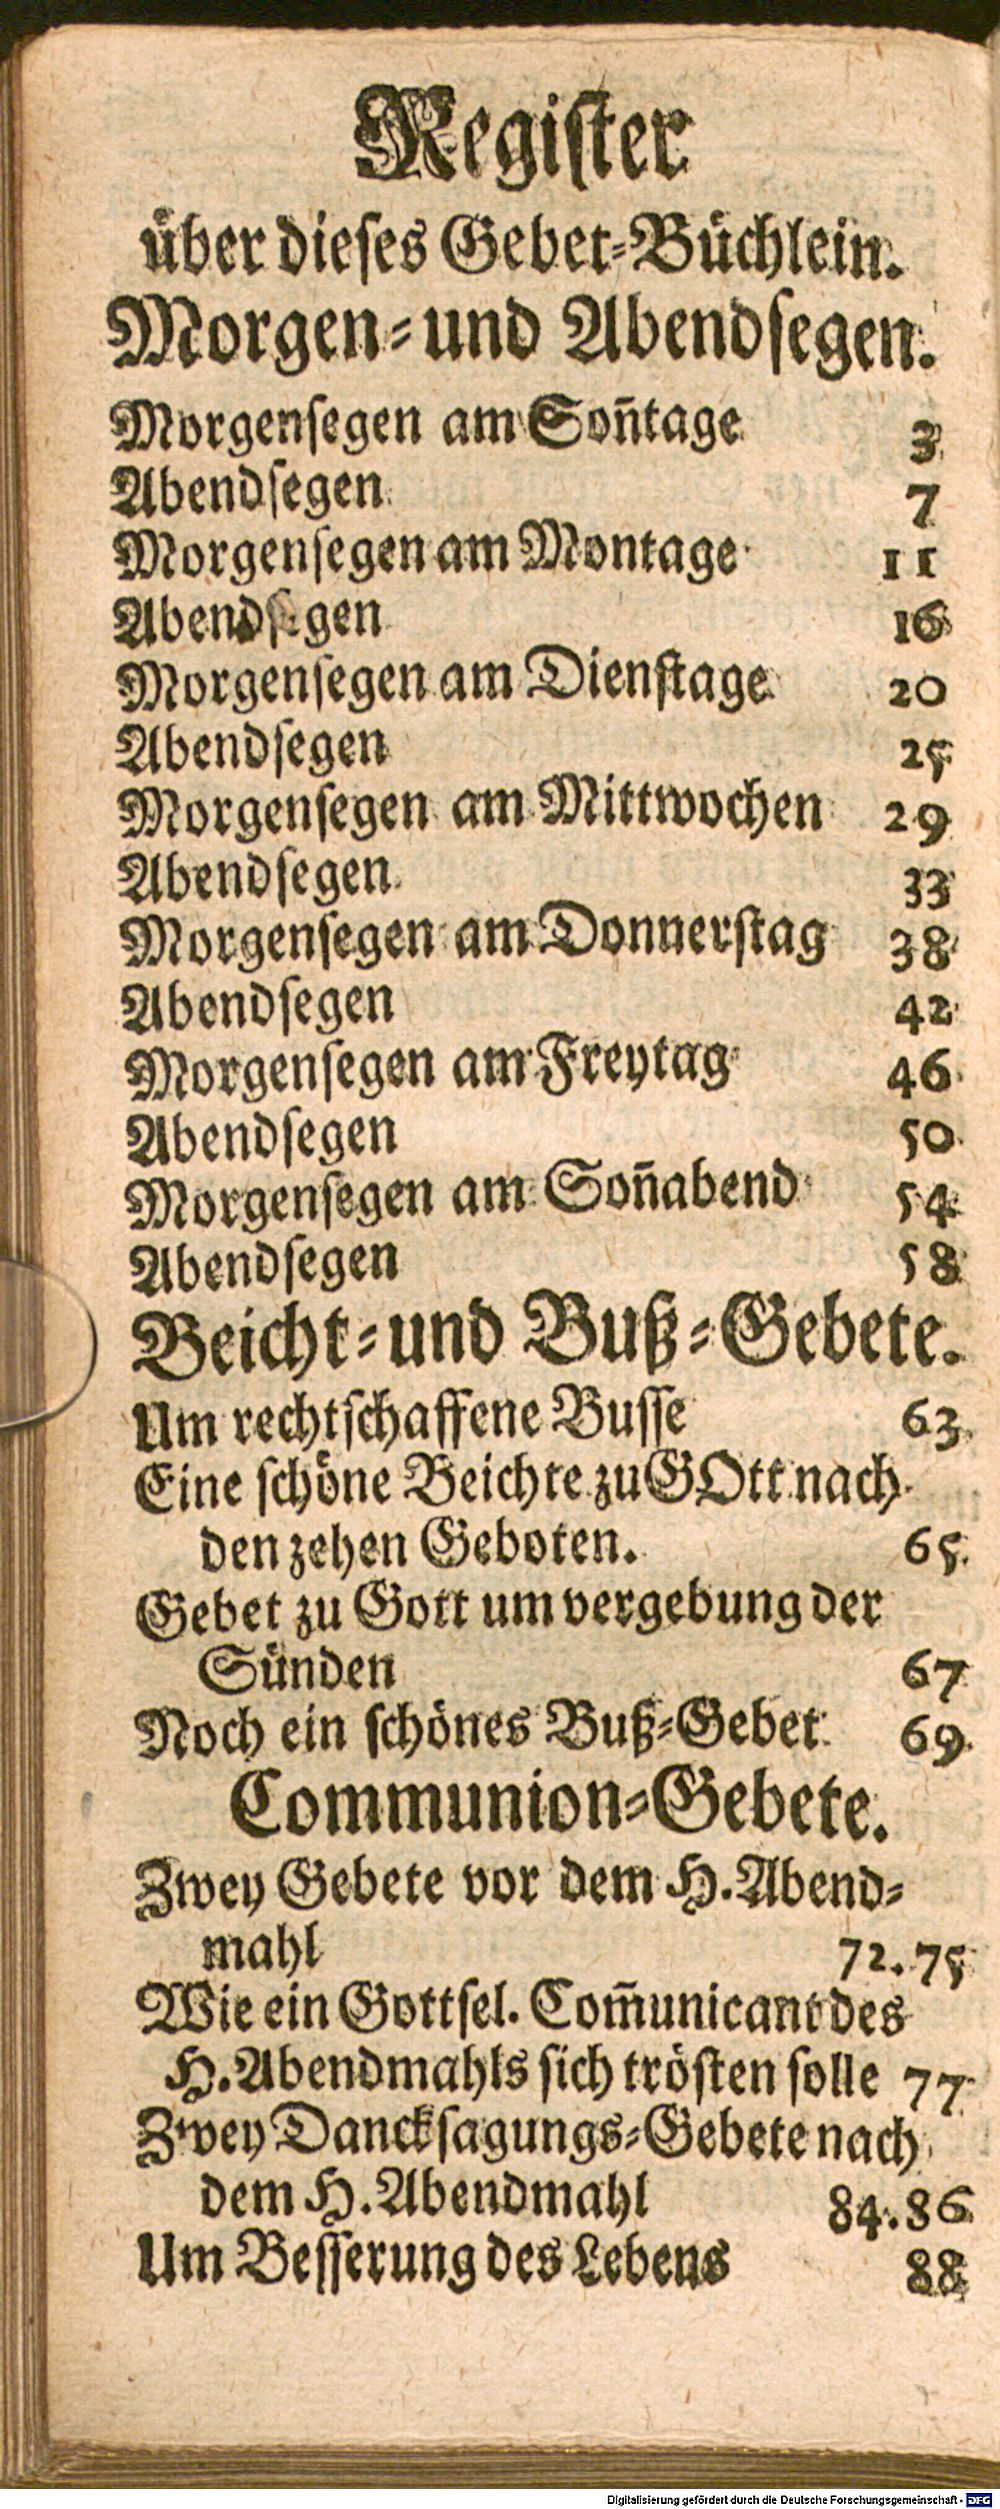 Regiſter
über dieſes Gebet-Büchlein.
Morgen-und Abendſegen.
Morgenſegen am Soñtage 3
Abendſegen 7
Morgenſegen am Montage 11
Abendſegen 16
Morgenſegen am Dienſtage 20
Abendſegen 25
Morgenſegen am Mittwochen 29
Abendſegen 33
Morgenſegen am Donnerſtag 38
Abendſegen 42
Morgenſegen am Freytag 46
Abendſegen 50
Morgenſegen am Soñabend 54
Abendſegen 58
Beicht-und Buß-Gebete.
Um rechtſchaffene Buſſe 63.
Eine ſchöne Beichte zu GOtt nach
den zehen Geboten. 65.
Gebet zu Gott um vergebung der
Sünden 67
Noch ein ſchönes Buß-Gebet 69.
Communion-Gebete.
Zwey Gebete vor dem H. Abend-
mahl 72. 75
Wie ein Gottſel. Com̃unicant des
H. Abendmahls ſich tröſten ſolle 77
Zwey Danckſagungs-Gebete nach
dem H. Abendmahl 84. 86
Um Beſſerung des Lebens 88
Digitalisierung gefördert durch die Deutsche Forschungsgemeinschaft - DFG